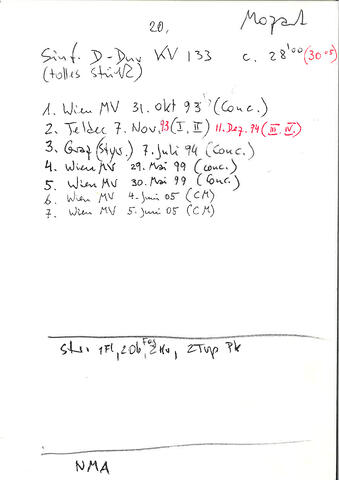 20. Mozart
Sinf. D-Dur KV 133 c. 28'00 (30'05)
(tolles Stück)
1. Wien MV 31. Okt 93 (Conc.)
2. Teldec 7. Nov. 93 (I, II) 11. Dez. 94 (III, IV.)
3. Graz (Styr.) 7. Juli 94 (Conc.)
4. Wien MV 29. Mai 99 (Conc.)
5. Wien MV 30. Mai 99 (Conc.)
6. Wien MV 4. Juni 05 (CM)
7. Wien MV 5. Juni 05 (CM)
Str. 1Fl, 2Ob, Fag 2Hn, 2Trp Pk
NMA